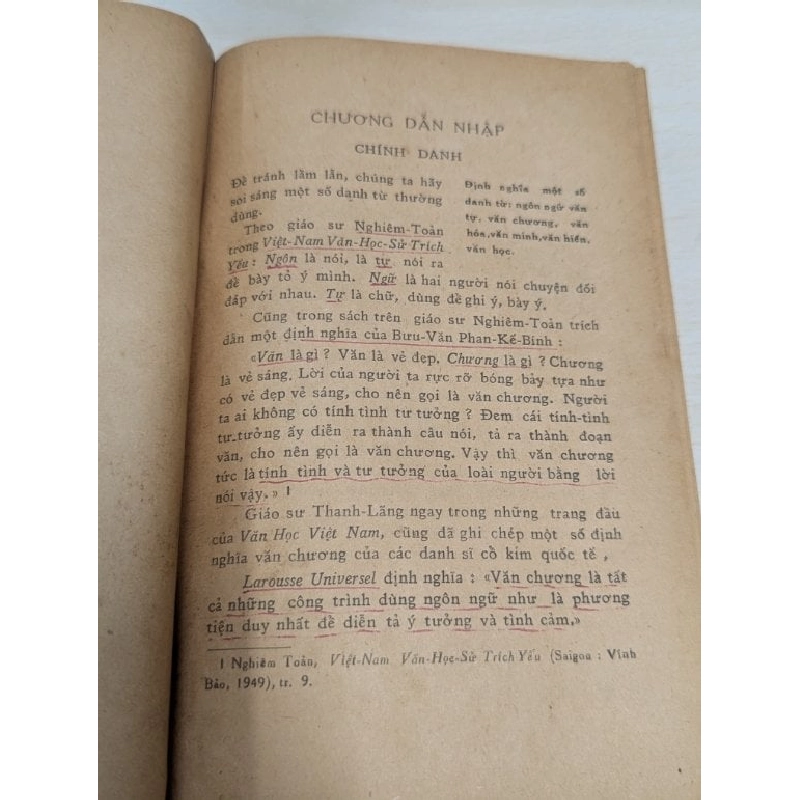 CHƯƠNG DẪN NHẬP
CHÍNH DANH
Để tránh lầm lẫn, chúng ta hãy
soi sáng một số danh từ thường
dùng.
Định nghĩa một số
danh từ: ngôn ngữ văn
tự, văn chương, văn
hóa,văn minh,văn hiến,
văn học.
Theo giáo sư Nghiêm-Toản
trong Việt-Nam Văn-Học-Sử Trích
Yếu: Ngôn là nói, là tự nói ra
để bày tỏ ý mình. Ngữ là hai người nói chuyện đối
đáp với nhau. Tự là chữ, dùng để ghi ý, bày ý.
Cũng trong sách trên giáo sư Nghiêm-Toản trích
dẫn một định nghĩa của Bưu-Văn Phan-Kế-Bính :
«Văn là gì ? Văn là vẻ đẹp. Chương là gì ? Chương
là vẻ sáng. Lời của người ta rực rỡ bóng bảy tựa như
có vẻ đẹp vẻ sáng, cho nên gọi là văn chương. Người
ta ai không có tính tình tư tưởng ? Đem cái tính-tình
tư-tưởng ấy diễn ra thành câu nói, tả ra thành đoạn
văn, cho nên gọi là văn chương. Vậy thì văn chương
tức là tính tình và tư tưởng của loài người bằng lời
nói vậy.» 1
Giáo sư Thanh-Lãng ngay trong những trang đầu
của Văn Học Việt Nam, cũng đã ghi chép một số định
nghĩa văn chương của các danh sĩ cổ kim quốc tế ,
Larousse Universel định nghĩa : «Văn chương là tất
cả những công trình dùng ngôn ngữ như là phương
tiện duy nhất để diễn tả ý tưởng và tình cảm.»
1 Nghiêm Toản, Việt-Nam Văn-Học-Sử Trích Yếu (Saigon : Vĩnh
Bảo, 1949), tr. 9.